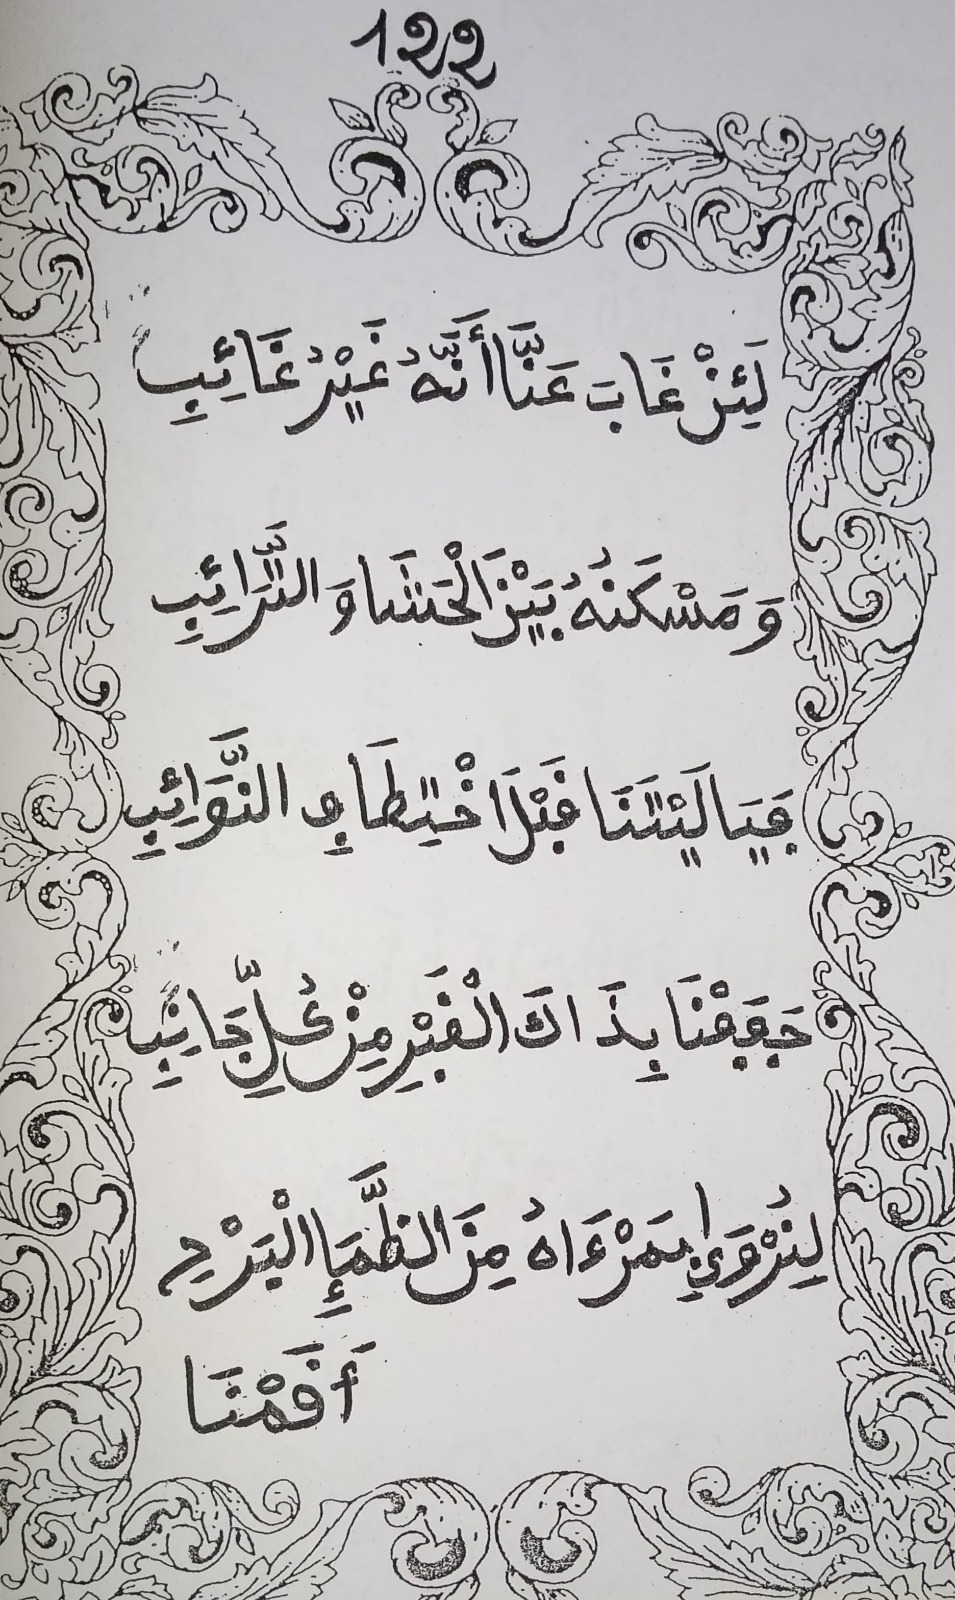 122
لَئِنْ غَابَ عَنَّا أَنَّهُ غَيْرُ غَائِبِ
وَمَسْكَنُهُ بَيْنَ الْحَشَا وَالتَّرَائِبِ
فَيَا لَيْتَنَا قَبْلَ اخْتِطَافِ النَّوَائِبِ
حَفَفْنَا بِذَاكَ الْقَبْرِ مِنْ كُلِّ جَانِبِ
لِنُرْوَى بِمَرْءَاهُ مِنَ الظَّمَإِ الْبَرْدِ
أَقَمْنَا